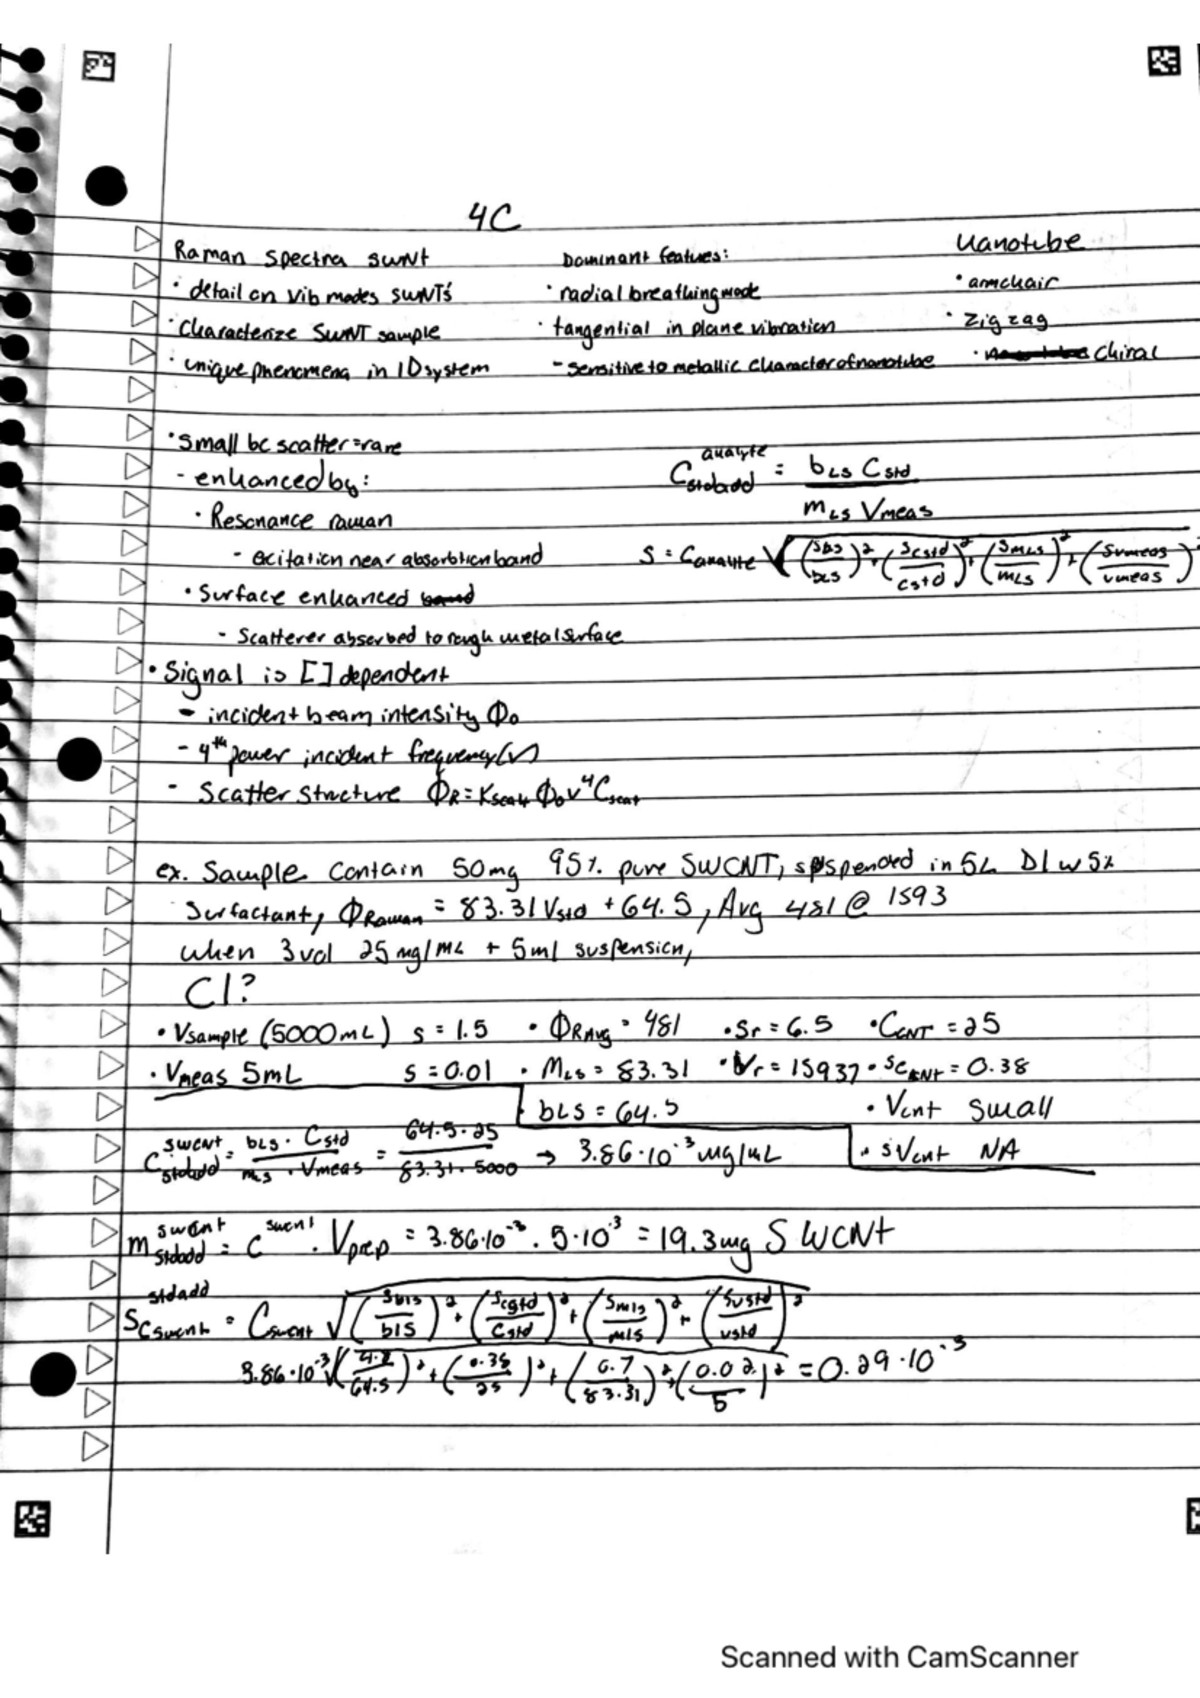 4C
Raman Spectra SWNT
· detail on vib modes SWNT's
· Characterize SWNT sample
· unique phenomena in 1D system
Dominant featues:
· radial breathing mode
· tangential in plane vibration
- sensitive to metallic character of nanotube
Nanotube
· armchair
· Zigzag
· Chiral
· Small bc scatter = rare
- enhanced by:
· Resonance raman
- excitation near absorbtion band
· Surface enhanced
- Scatterer absorbed to rough metal surface
C analyte stdadd = bLS Cstd / mLS Vmeas
S = Canalyte √((Sbs/bLS)² + (Scstd/cstd)² + (SmLS/mLS)² + (Svmeas/vmeas)²
· Signal is [ ] dependent
- incident beam intensity Φ0
- 4th power incident frequency (v)
- Scatter Structure ΦR = Kscat Φ0 v⁴ Cscat
ex. Sample Contain 50mg 95% pure SWCNT, suspended in 5L DI w 5%
Surfactant, ΦRaman = 83.31 Vstd + 64.5, Avg 481 @ 1593
when 3 vol 25 mg/mL + 5ml suspension,
CI?
· Vsample (5000mL) s = 1.5 · ΦRAvg = 481 · Sr = 6.5 · CCNT = 25
· Vmeas 5mL s = 0.01 · MLS = 83.31 · Vr = 15937 · SCCNT = 0.38
bLS = 64.5 · Vcnt Small
C swcnt stdadd = bLS · Cstd / mLS · Vmeas = 64.5 · 25 / 83.31 · 5000 → 3.86·10⁻³ mg/mL · sVcnt NA
m swcnt stdadd = C swcnt · Vprep = 3.86·10⁻³ · 5·10³ = 19.3mg SWCNT
S stdadd Cswcnt = Cswcnt √((SbLS/bLS)² + (Scstd/Cstd)² + (SmLS/mLS)² + (Svstd/vstd)²
3.86·10⁻³ √((4.2/64.5)² + (0.38/25)² + (0.7/83.31)² + (0.02/5)² = 0.29·10⁻³
Scanned with CamScanner